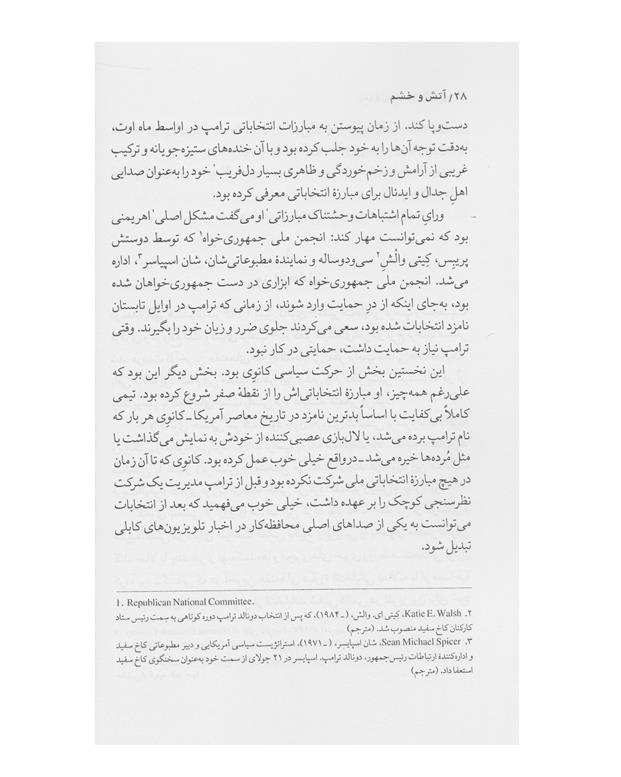 ۲۸/ آتش و خشم
دست‌وپا کند. از زمان پیوستن به مبارزات انتخاباتی ترامپ در اواسط ماه اوت،
به‌دقت توجه آن‌ها را به خود جلب کرده بود و با آن خنده‌های ستیزه‌جویانه و ترکیب
غریبی از آرامش و زخم‌خوردگی و ظاهری بسیار دل‌فریب خود را به‌عنوان صدایی
اهلِ جدال و ایدئال برای مبارزهٔ انتخاباتی معرفی کرده بود.
ورایِ تمام اشتباهات وحشتناک مبارزاتی او می‌گفت مشکل اصلی اهریمنی
بود که نمی‌توانست مهار کند: انجمن ملی جمهوری‌خواه۱ که توسط دوستش
پریبس، کیتی والْشِ۲ سی‌ودوساله و نمایندهٔ مطبوعاتی‌شان، شان اسپیاسر۳، اداره
می‌شد. انجمن ملی جمهوری‌خواه که ابزاری در دست جمهوری‌خواهان شده
بود، به‌جای اینکه از درِ حمایت وارد شوند، از زمانی که ترامپ در اوایل تابستان
نامزد انتخابات شده بود، سعی می‌کردند جلوی ضرر و زیان خود را بگیرند. وقتی
ترامپ نیاز به حمایت داشت، حمایتی در کار نبود.
این نخستین بخش از حرکت سیاسی کانوِی بود. بخش دیگر این بود که
علی‌رغم همه‌چیز، او مبارزهٔ انتخاباتی‌اش را از نقطهٔ صفر شروع کرده بود. تیمی
کاملاً بی‌کفایت با اساساً بدترین نامزد در تاریخ معاصر آمریکا ـ کانوِی هر بار که
نام ترامپ برده می‌شد، یا لال‌بازی عصبی‌کننده از خودش به نمایش می‌گذاشت یا
مثل مُرده‌ها خیره می‌شد ـ درواقع خیلی خوب عمل کرده بود. کانوِی که تا آن زمان
در هیچ مبارزهٔ انتخاباتی ملی شرکت نکرده بود و قبل از ترامپ مدیریت یک شرکت
نظرسنجی کوچک را بر عهده داشت، خیلی خوب می‌فهمید که بعد از انتخابات
می‌توانست به یکی از صداهای اصلی محافظه‌کار در اخبار تلویزیون‌های کابلی
تبدیل شود.
1. Republican National Committee.
۲. Katie E. Walsh، کیتی ای. والش، (ـ ۱۹۸۴)، که پس از انتخاب دونالد ترامپ دوره کوتاهی به سمت رئیس ستاد
کارکنان کاخ سفید منصوب شد. (مترجم)
۳. Sean Michael Spicer، شان اسپایسر، (ـ ۱۹۷۱)، استراتژیست سیاسی آمریکایی و دبیر مطبوعاتی کاخ سفید
و اداره‌کنندهٔ ارتباطات رئیس‌جمهور، دونالد ترامپ. اسپایسر در ۲۱ جولای از سمت خود به‌عنوان سخنگوی کاخ سفید
استعفا داد. (مترجم)